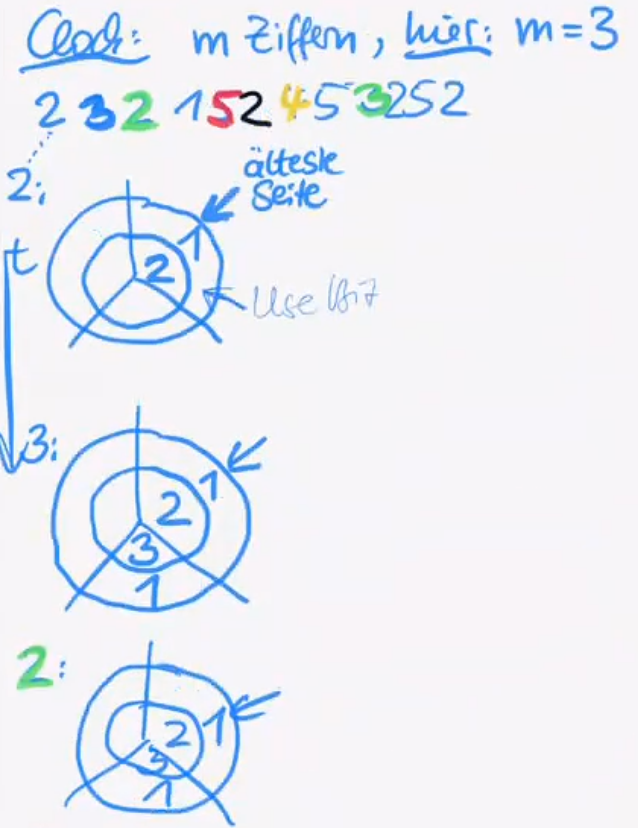 Clock: m Ziffern, hier: m=3
2 3 2 1 5 2 4 5 3 2 5 2
älteste
Seite
2:
1
2
t
Use Bit
3:
1
2
3
1
2:
1
2
3
1